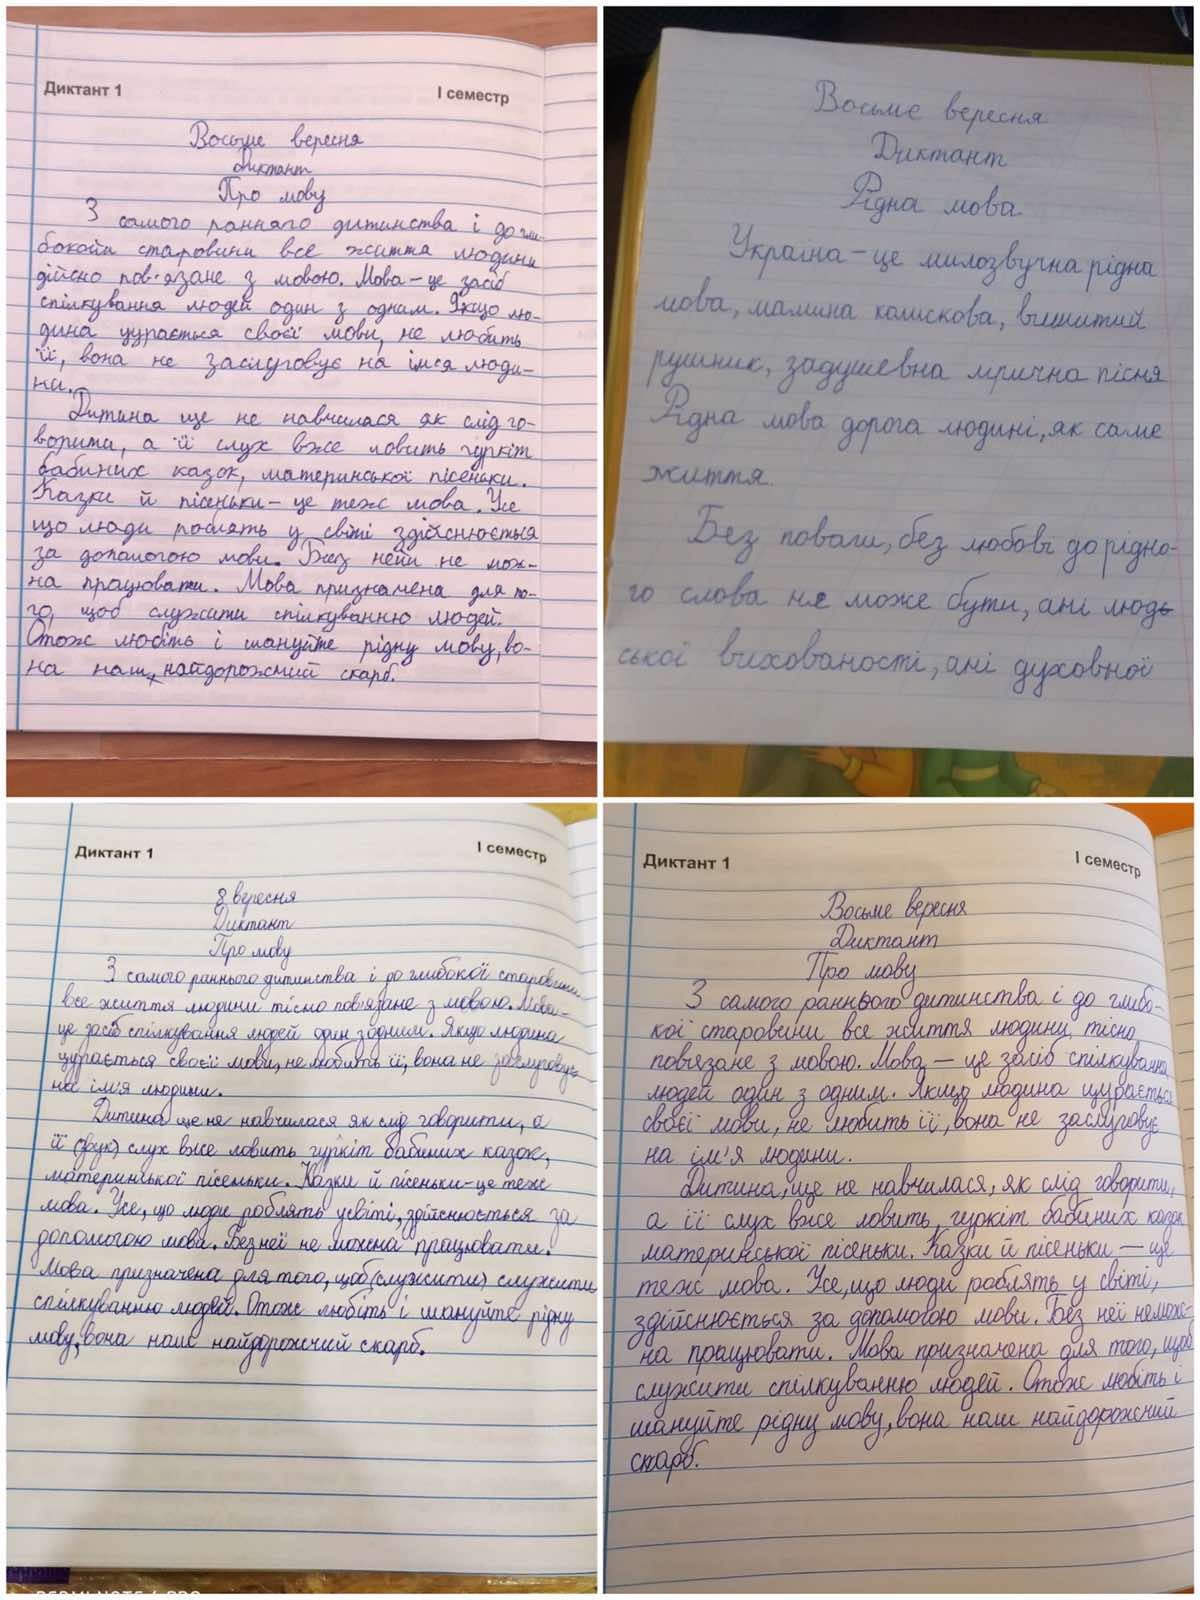 Диктант 1 І семестр
Восьме вересня
Диктант
Про мову
З самого раннаго дитинства і до гли-
бокойи старовини все життя людини
дійсно пов'язане з мовою. Мова - це засіб
спілкування людей один з одним. Якщо лю-
дина цурається своєї мови, не любить
її, вона не заслуговує на імя люди-
ни.
Дитина ще не навчилася як слід го-
ворити, а її слух вже ловить гуркіт
бабиних казок, материнської пісеньки.
Казки й пісеньки - це теж мова. Усе
що люди роблять у світі здійснюється
за допомогою мови. Без нейи не мож-
на працювати. Мова призначена для то-
го, щоб служити спілкуванню людей.
Отож любіть і шануйте рідну мову, во-
на наш найдорожчий скарб.
Восьме вересня
Диктант
Рідна мова
Україна - це милозвучна рідна
мова, мамина колискова, вишитий
рушник, задушевна лірична пісня
Рідна мова дорога людині, як саме
життя.
Без поваги, без любові до рідно-
го слова не може бути, ані людь
ської вихованості, ані духовної
Диктант 1 І семестр
8 вересня
Диктант
Про мову
З самого раннього дитинства і до глибокої старовини
все життя людини тісно пов'язане з мовою. Мова -
це засіб спілкування людей один з одним. Якщо людина
цурається своєї мови, не любить її, вона не заслуговує
на ім'я людини.
Дитина ще не навчилася як слід говорити, а
її (вухо) слух вже ловить гуркіт бабиних казок,
материнської пісеньки. Казки й пісеньки - це теж
мова. Усе, що люди роблять усвіті, здійснюється за
допомогою мови. Без неї не можна працювати.
Мова призначена для того, щоб (служити) служити
спілкуванню людей. Отож любіть і шануйте рідну
мову, вона наш найдорожчий скарб.
Диктант 1 І семестр
Восьме вересня
Диктант
Про мову
З самого раннього дитинства і до глибо-
кої старовини все життя людини тісно
пов'язане з мовою. Мова — це засіб спілкування
людей один з одним. Якщо людина цурається
своєї мови, не любить її, вона не заслуговує
на ім'я людини.
Дитина, ще не навчилася, як слід говорити,
а її слух вже ловить, гуркіт бабиних казок
материнської пісеньки. Казки й пісеньки — це
теж мова. Усе, що люди роблять у світі,
здійснюється за допомогою мови. Без неї немож-
на працювати. Мова призначена для того, щоб
служити спілкуванню людей. Отож любіть і
шануйте рідну мову, вона наш найдорожчий
скарб.